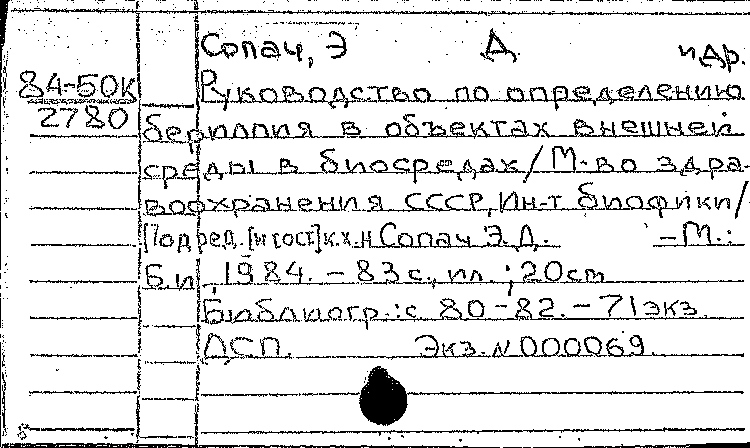 Сопач, Э Д. и др.
84-50к Руководство по определению
2780 бериллия в объектах внешней
среды в биосредах/М-во здра-
воохранения СССР, Ин-т биофики/
[Под ред. [и сост] к.х.н Сопач Э.Д. -М.:
Б.и, 1984. - 83 с., ил.; 20 cm
Библиогр.: с 80-82. - 71 экз.
ДСП. Экз. N 000069.